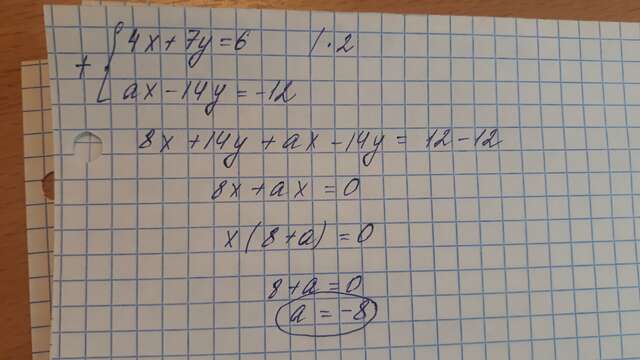 4x + 7y = 6 / · 2
+ { ax - 14y = -12
8x + 14y + ax - 14y = 12 - 12
8x + ax = 0
x(8 + a) = 0
8 + a = 0
a = -8